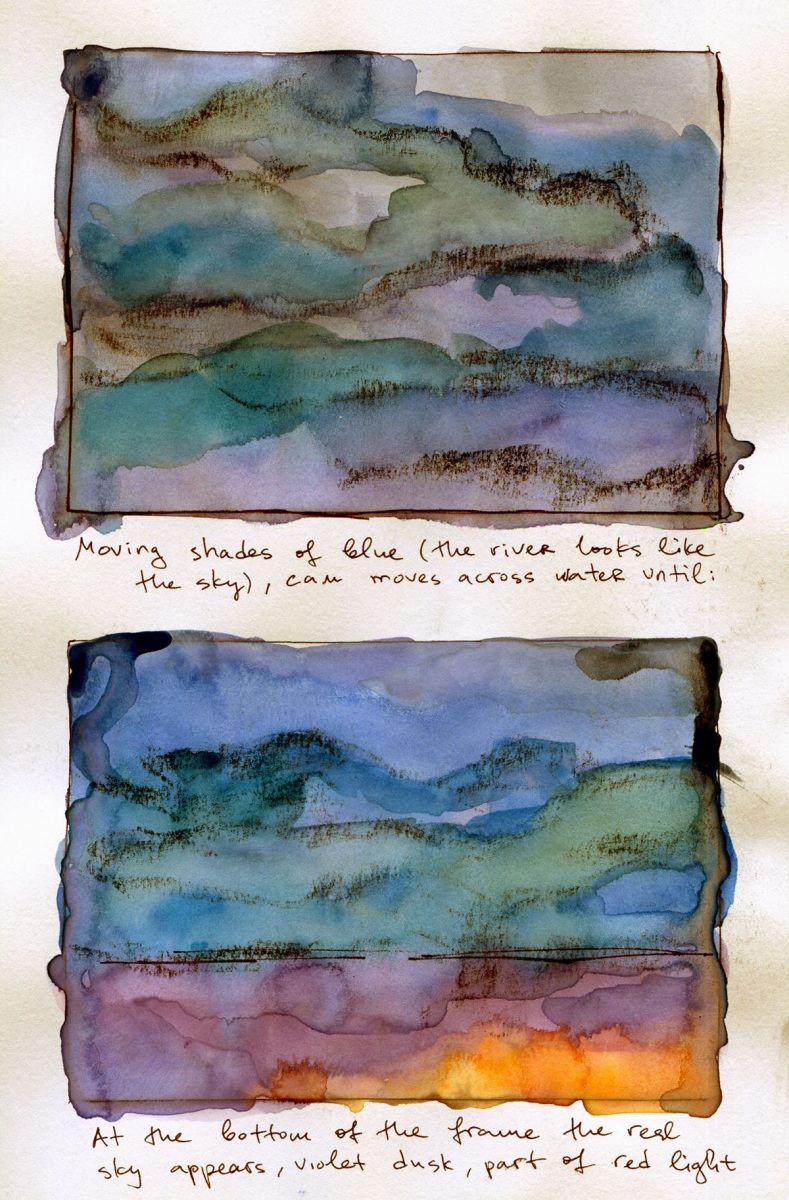 Moving shades of blue (the river looks like
the sky), cam moves across water until:
At the bottom of the frame the real
sky appears, violet dusk, part of red light